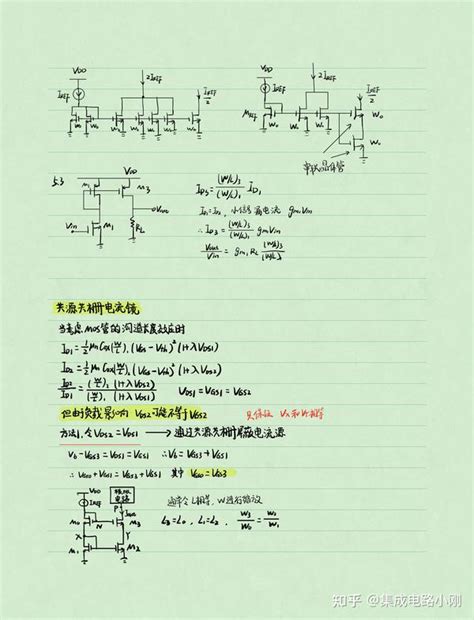 VDD
2IREF
IREF
IREF/2
W0 W0 W0 W0 W0 W0
VDD
2IREF
IREF
IREF/2
MREF
W0 W0 W0 W0
W0
5.3
VDD
M2 M3
Vin M1 RL Vout
ID3 = (W/L)3/(W/L)2 ID2
ID1 = ID2, 小信号漏电流 gm1Vin
∴ ID3 = (W/L)3/(W/L)2 gm1Vin
Vout/Vin = gm1RL (W/L)3/(W/L)2
共源共栅电流镜
当考虑MOS管的沟道长度效应时
ID1 = 1/2 μnCox(W/L)1 (VGS-Vth)²(1+λVDS1)
ID2 = 1/2 μnCox(W/L)2 (VGS-Vth)²(1+λVDS2)
ID2/ID1 = (W/L)2/(W/L)1 (1+λVDS2)/(1+λVDS1) VDS1=VGS1=VGS2
但由于负载影响 VDS2可能不等于VGS2
方法1, 令VDS2=VDS1 → 通过共源共栅屏蔽电流源
Vb-VGS3=VDS1=VGS1 ∴Vb=VGS3+VGS1
∴VGS0+VGS1=VGS3+VGS1 其中 VGS0=VGS3
VDD
IREF P Iout
M0 N M3
X Y
M1 M2
通常令L相等, W进行缩放
L3=L0, L1=L2, W3/W0 = W2/W1
知乎 @集成电路小刚